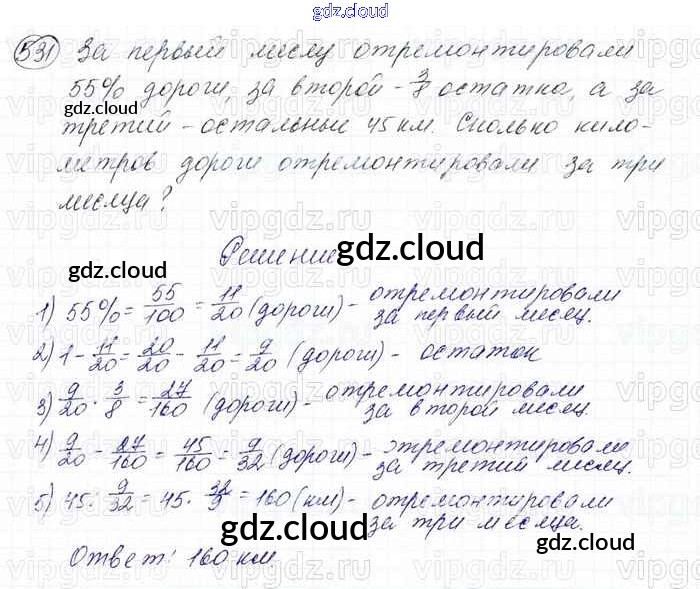 gdz.cloud
531 За первый месяц отремонтировали
55% дороги, за второй - 3/8 остатка, а за
третий - остальные 45 км. Сколько кило-
метров дороги отремонтировали за три
месяца?
Решение
1) 55% = 55/100 = 11/20 (дороги) - отремонтировали за первый месяц.
2) 1 - 11/20 = 20/20 - 11/20 = 9/20 (дороги) - остаток
3) 9/20 · 3/8 = 27/160 (дороги) - отремонтировали за второй месяц.
4) 9/20 - 27/160 = 45/160 = 9/32 (дороги) - отремонтировали за третий месяц.
5) 45 : 9/32 = 45 · 32/9 = 160 (км) - отремонтировали за три месяца.
Ответ: 160 км
gdz.cloud
gdz.cloud
gdz.cloud
gdz.cloud
gdz.cloud
gdz.cloud
gdz.cloud